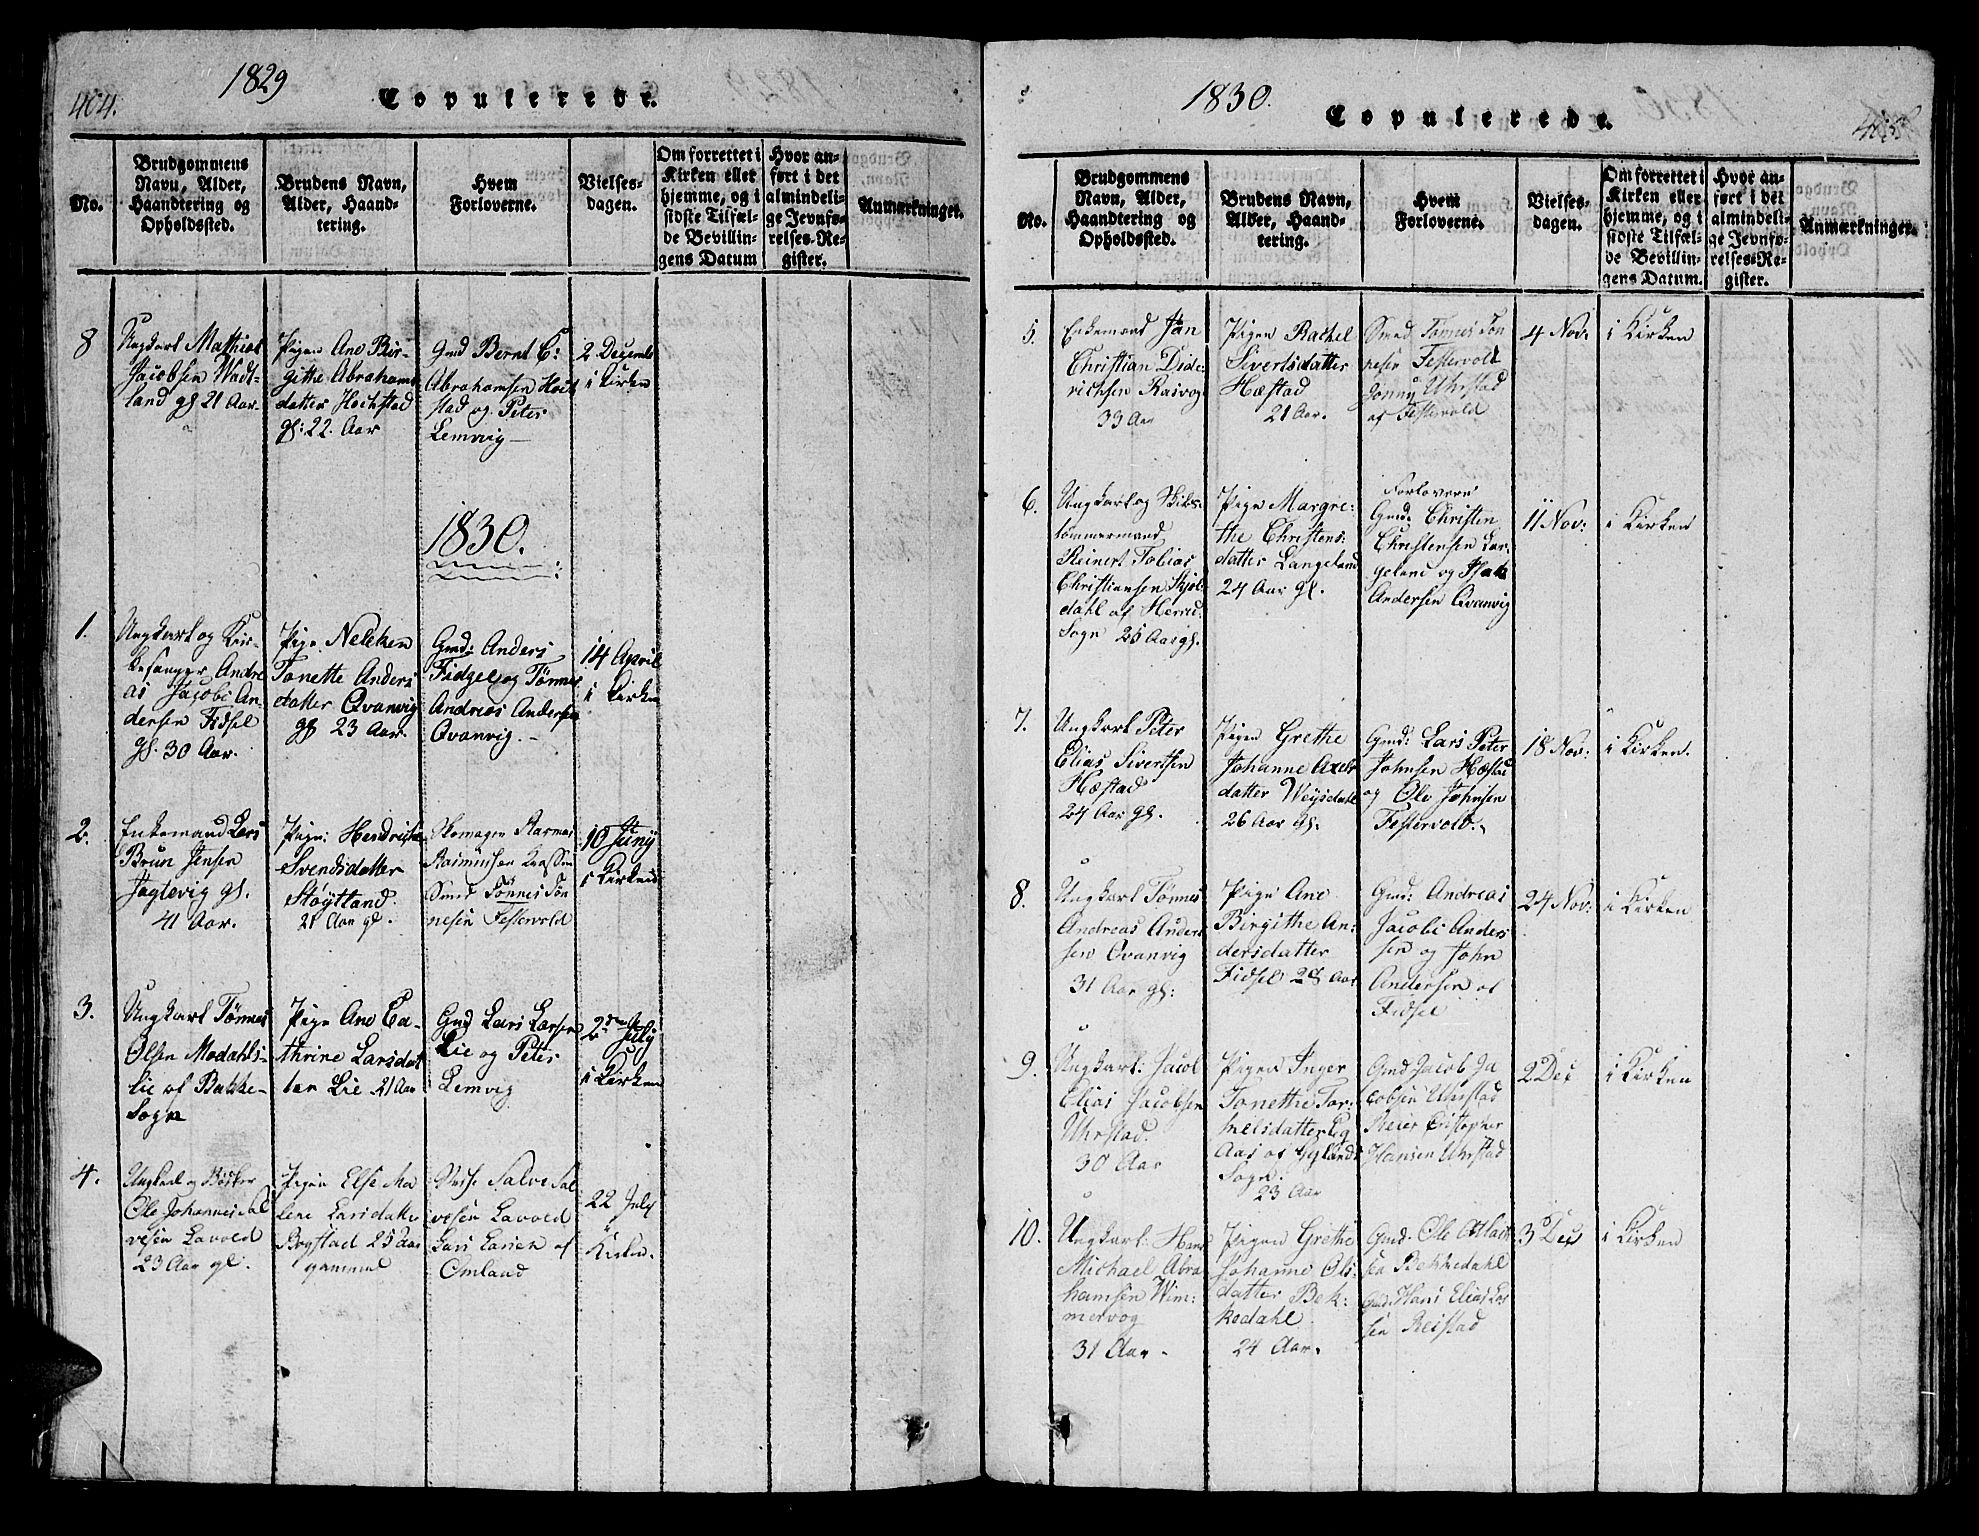 404.
1829
Copulerede.
No.
Brudgommens
Navn, Alder,
Haandtering og
Opholdssted.
Brudens Navn,
Alder, Haand-
tering.
Hvem
Forloverne.
Vielses-
dagen.
Om forrettet i
Kirken eller
hjemme, og i
sidste Tilfæl-
de Bevillin-
gens Datum
Hvor an-
ført i det
almindeli-
ge Jevnfø-
relses-Re-
gister.
Anmærkninger.
8
Ungkarl Mathias
Jacobsen Wadt-
land gl 21 Aar.
Pigen Ane Bir-
gitthe Abrahams
datter Hochstad
gl: 22. Aar
Gmd Bernt C:
Abrahamsen
stad og Peter
Lemvig
2 Decemb
i Kirken
1830.
1.
Ungkarl og Kir-
kesanger Andre
as Jacobi An-
dersen Fidsel
gl. 30 Aar.
Pige Nelcken
Tonette Anders
datter Qvanvig
gl 23 Aar.
Gmd: Anders
Fidsel og Tønnes
Andreas Andersen
Qvanvig.
14 April
i Kirken
2.
Enkemand Lars
Brun Jensen
Jaglevig gl.
41 Aar.
Pige: Hendricke
Svendsdatter
Støytland
21 Aar gl.
Skomager Rasmus
Rasmussen
Smed Tønnes Tøn
nesen Festervold
10 Juny
i Kirken
3.
Ungkarl Tønnes
Olsen Modahls-
lie af Bakke-
Sogn
Pige Ane Ca-
thrine Larsdat
ter Lie 21 Aar
Gmd Lars Larsen
Lie og Peter
Lemvig
2den July
i Kirken
4.
Ungkarl og Bøcker
Ole Johannes Sal
vesen Lavold
23 Aar gl.
Pigen Else Ma
lene Larsdatter
Bogstad 25 Aar
gammel
Salve Sal
vesen Lavold
Lars Larsen af
Omland
22 July
i
Kirken.
1830.
Copulerede.
No.
Brudgommens
Navn, Alder,
Haandtering og
Opholdssted.
Brudens Navn,
Alder, Haand-
tering.
Hvem
Forloverne.
Vielses-
dagen.
Om forrettet i
Kirken eller
hjemme, og i
sidste Tilfæl-
de Bevillin-
gens Datum.
Hvor an-
ført i det
almindeli-
ge Jevnfø-
relses-Re-
gister.
Anmærkninger.
5.
Enkemand Jan
Christian Dide-
richsen Rasvog
33 Aar
Pigen Rachel
Sivertsdatter
Hæstad
21 Aar.
Smed Tønnes Tøn
nesen Festervold
Uhrstad
af Festervold
4 Nov:
i Kirken
6.
Ungkarl og Skibs-
tømmermand
Reinert Tobias
Christiansen
dahl af Herred
Sogn 25 Aar gl.
Pige Margre-
the Christens-
datter Langeland
24 Aar gl.
Forlovere
Gmd: Christen
Christensen Lan-
geland og Isak
Andersen Qvanvig
11 Nov:
i Kirken
7.
Ungkarl Peter
Elias Sivertsen
Hæstad
24 Aar gl.
Pigen Grethe
Johanne Axels
datter Weysdahl
26 Aar gl.
Gmd: Lars Peter
Johnsen Hæstad
og Ole Johnsen
Festervold.
18 Nov:
i Kirken.
8.
Ungkarl Tønnes
Andreas Ander
sen Qvanvig
31 Aar gl:
Pige Ane
Birgithe An-
dersdatter
Fidsel 28 Aar
Gmd: Andreas
Jacobi Anders
sen og John
Andersen af
Fidsel
24 Nov:
i Kirken
9.
Ungkarl: Jacob
Elias Jacobsen
Uhrstad.
30 Aar
Pigen Inger
Tonethe Tor-
kelsdatter Eeg
Aas af Gylands
Sogn.
23 Aar
Gmd Jacob Ja
cobsen Uhrstad
Reier Cristopher
Hansen Uhrstad
2 Dec
i Kirken
10.
Ungkarl: Hans
Michael Abra
hamsen Wim-
mervog
31 Aar
Pigen Grethe
Johanne Ols-
datter Bek-
kedahl
24 Aar.
Gmd. Ole Atlak
sen Bekkedahl
Gmd: Hans Elias
sen Reistad
3 Dec
i Kirken